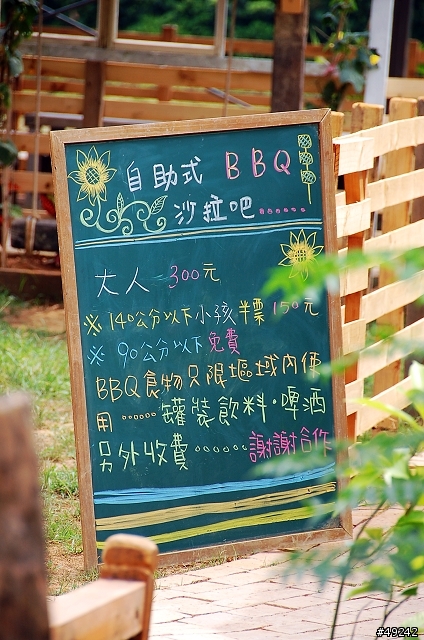 自助式 BBQ
沙拉吧......
大人 300元
※140公分以下小孩半票150元
※ 90公分以下免費
BBQ食物只限區域內使
用......罐裝飲料·啤酒
另外收費......謝謝合作
#49242